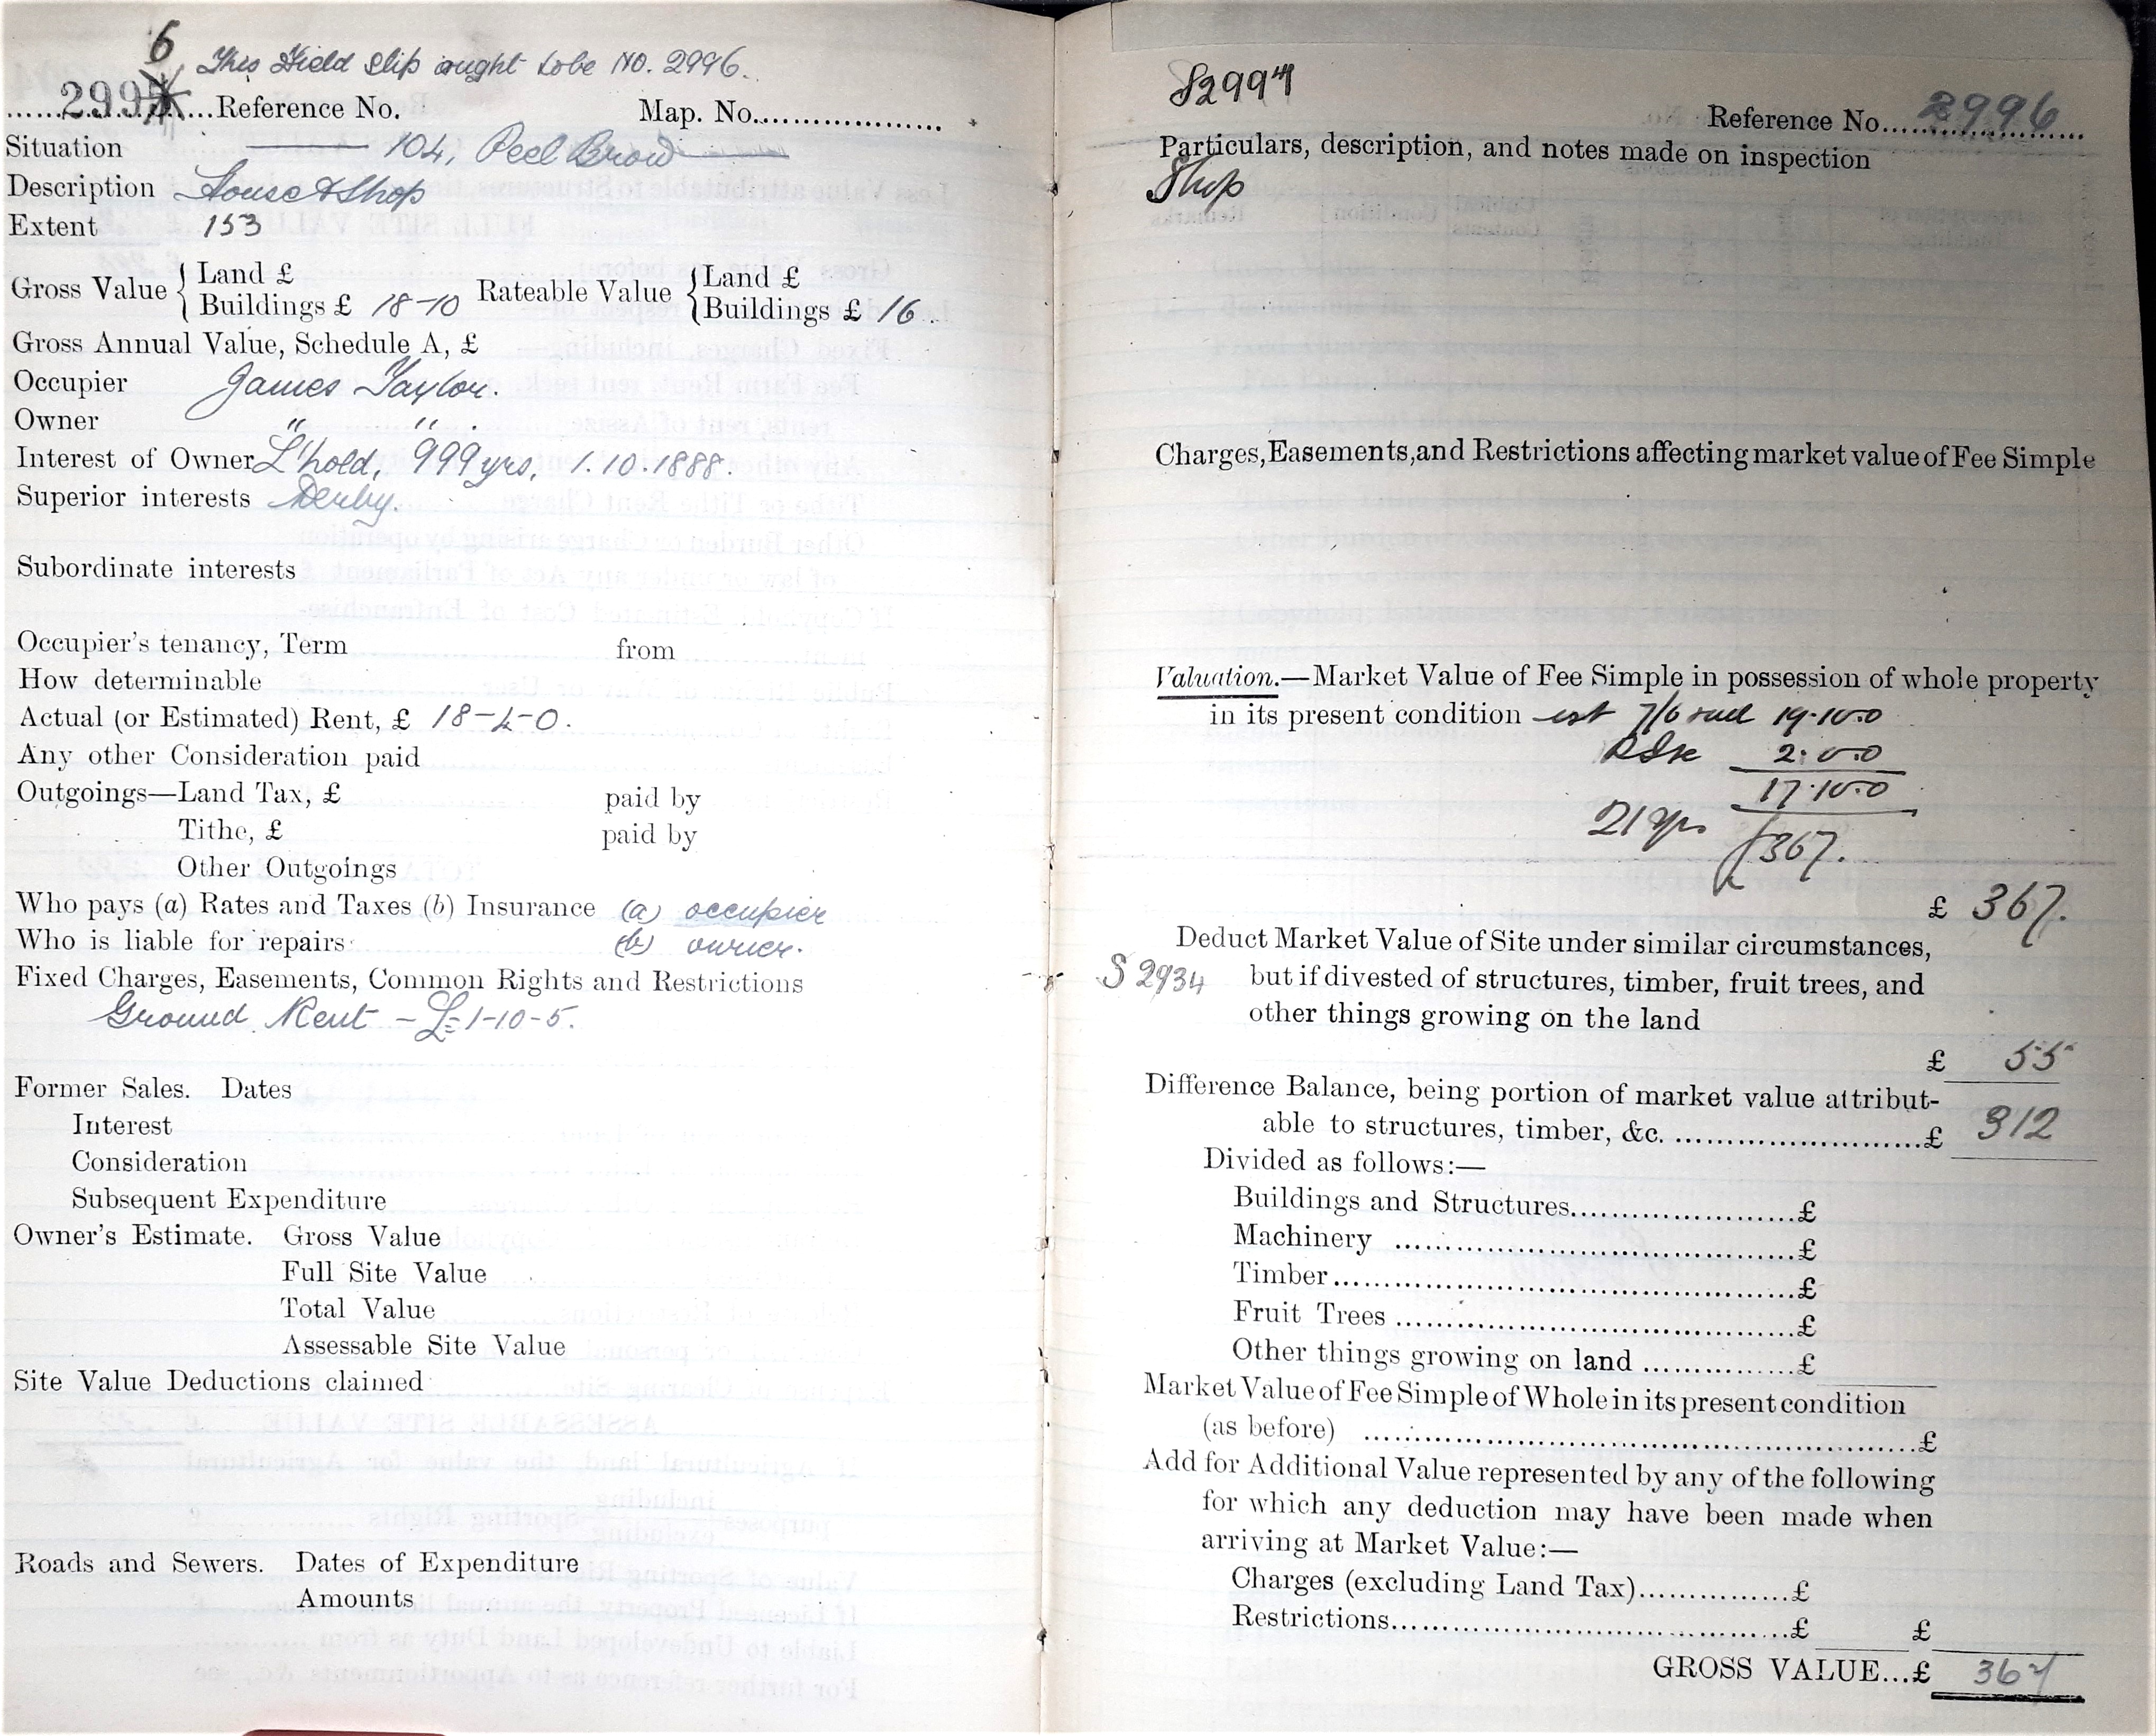 6 This Field slip ought to be NO. 2996.
299 Reference No. Map. No.
Situation 104, Peel Brow
Description House & Shop
Extent 153
Gross Value { Land £ Rateable Value { Land £
Buildings £ 18-10 Buildings £ 16.
Gross Annual Value, Schedule A, £
Occupier James Taylor.
Owner " " .
Interest of Owner L'hold, 999 yrs, 1.10.1888.
Superior interests Derby.
Subordinate interests
Occupier's tenancy, Term from
How determinable
Actual (or Estimated) Rent, £ 18-4-0.
Any other Consideration paid
Outgoings—Land Tax, £ paid by
Tithe, £ paid by
Other Outgoings
Who pays (a) Rates and Taxes (b) Insurance (a) occupier
Who is liable for repairs (b) owner.
Fixed Charges, Easements, Common Rights and Restrictions
Ground Rent - £=1-10-5.
Former Sales. Dates
Interest
Consideration
Subsequent Expenditure
Owner's Estimate. Gross Value
Full Site Value
Total Value
Assessable Site Value
Site Value Deductions claimed
Roads and Sewers. Dates of Expenditure
Amounts
S2994
Reference No. 2996
Particulars, description, and notes made on inspection
Shop
Charges, Easements, and Restrictions affecting market value of Fee Simple
Valuation.—Market Value of Fee Simple in possession of whole property
in its present condition est 7/6 19.10.0
2.0.0
17.10.0
21 yrs £367.
£ 367.
Deduct Market Value of Site under similar circumstances,
S 2934 but if divested of structures, timber, fruit trees, and
other things growing on the land
£ 55
Difference Balance, being portion of market value attribut-
able to structures, timber, &c. £ 312
Divided as follows:—
Buildings and Structures £
Machinery £
Timber £
Fruit Trees £
Other things growing on land £
Market Value of Fee Simple of Whole in its present condition
(as before) £
Add for Additional Value represented by any of the following
for which any deduction may have been made when
arriving at Market Value:—
Charges (excluding Land Tax) £
Restrictions £ £
GROSS VALUE...£ 367